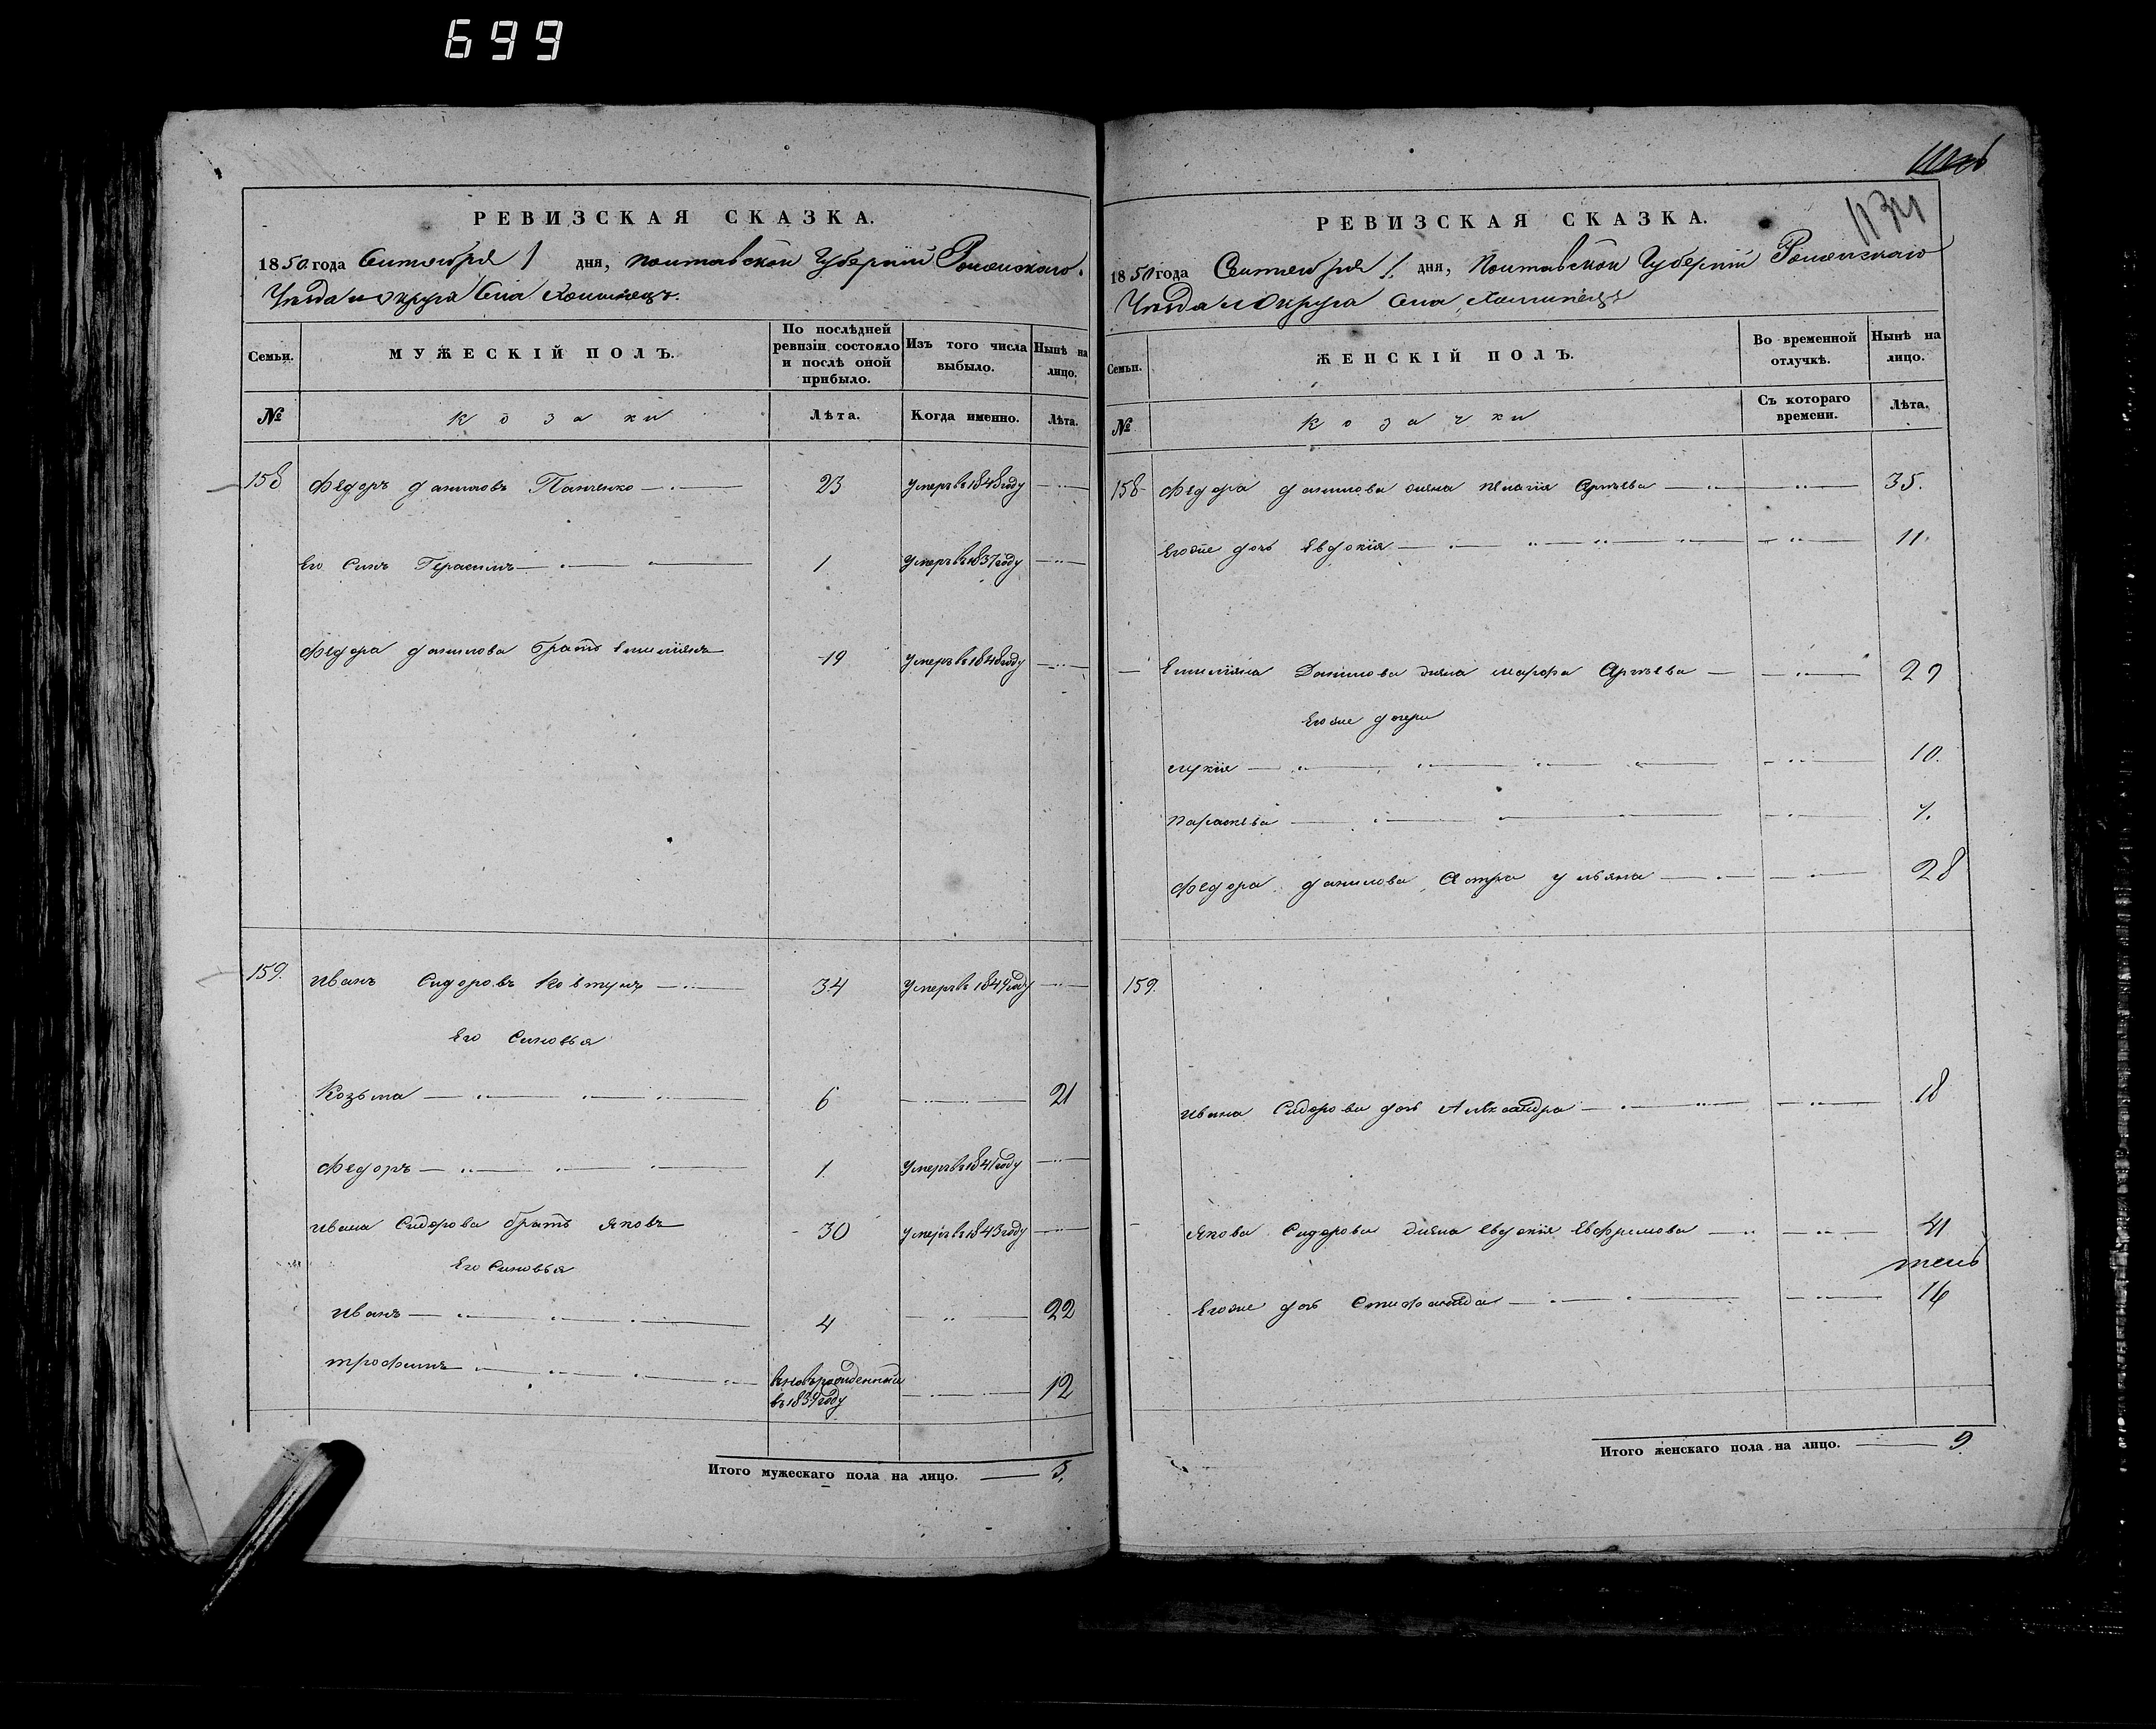 699
РЕВИЗСКАЯ СКАЗКА.
1850 года Сентября 1 дня, Полтавской Губернии Роменскаго
Уезда и округа Села
Семьи.
МУЖЕСКІЙ ПОЛЪ.
По послѣдней ревизіи состояло и послѣ оной прибыло.
Изъ того числа выбыло.
Нынѣ на лицо.
№
Козаки
Лѣта.
Когда именно.
Лѣта.
158 Федоръ Даниловъ Панченко 23 умеръ в 1848 году
Его Синъ Герасимъ 1 умеръ в 1837 году
Федора Данилова братъ Емилиянъ 19 умеръ в 1848 году
159. Иванъ Сидоровъ Ковтунъ 34 умеръ в 1849 году
Его Синовья
Козьма 6 21
Федоръ 1. умеръ в 1841 году
Ивана Сидорова братъ Яковъ 30 умеръ в 1843 году
Его Синовья
Иванъ 4 22
Трофимъ вновьрожденный 12
Итого мужескаго пола на лицо. 3.
1134
РЕВИЗСКАЯ СКАЗКА.
1850 года Сентября 1. дня, Полтавской Губерніи Роменскаго
Уезда и Округа Села
Семьи.
ЖЕНСКІЙ ПОЛЪ.
Во временной отлучкѣ.
Нынѣ на лицо.
№
Козачки
Съ котораго времени.
Лѣта.
158 Федора Данилова жена Пелагія 35.
Егоже дочь Евдокія 11.
Емилияна Данилова жена Марфа 29
Егоже дочери
Лукія 10.
Параскева
Федора Данилова Сестра Ульяна 28
159.
Ивана Сидорова дочь Александра 18
Якова Сидорова жена Евдокія Евфремова 41
Егоже дочь Стефанида 16
Итого женскаго пола на лицо. 9.